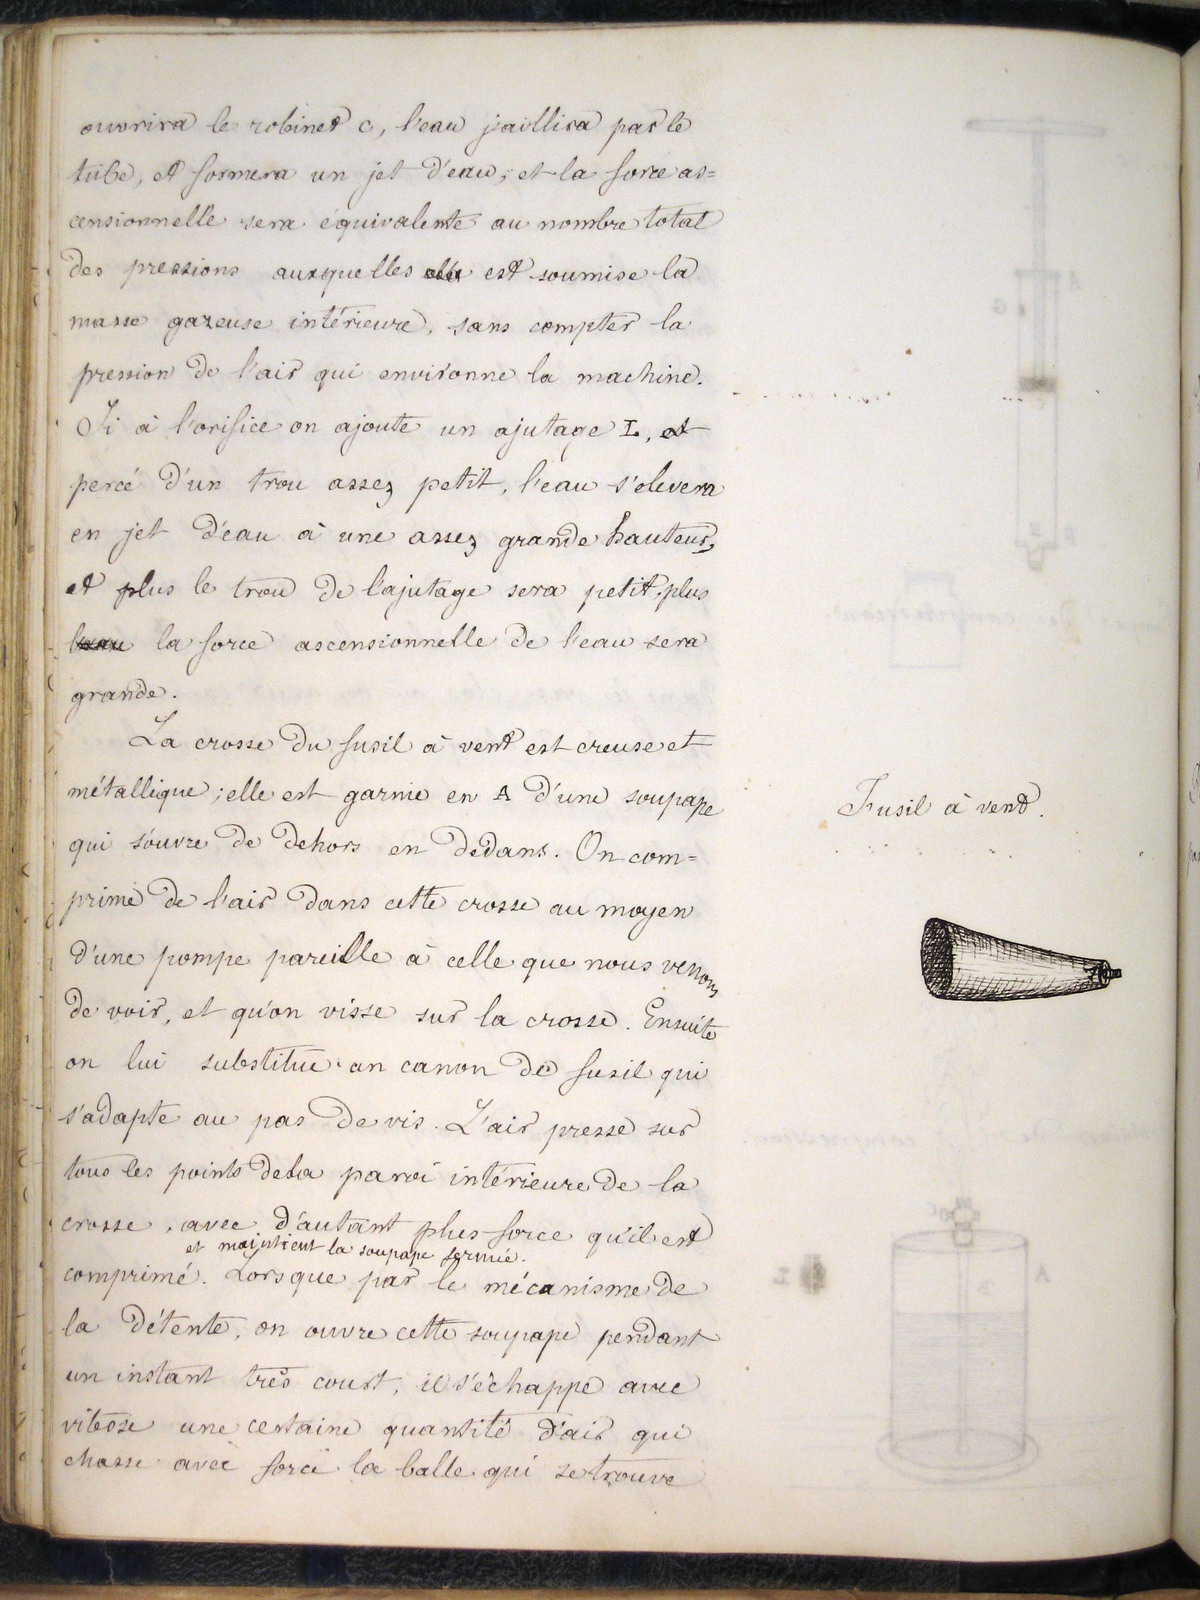 ouvrira le robinet C, l'eau jaillira par le
tube, et formera un jet d'eau, et la force as=
censionnelle sera équivalente au nombre total
des pressions auxquelles est soumise la
masse gazeuse intérieure, sans compter la
pression de l'air qui environne la machine.
Si à l'orifice on ajoute un ajutage I, et
percé d'un trou assez petit, l'eau s'élevera
en jet d'eau à une assez grande hauteur,
et plus le trou de l'ajutage sera petit, plus
la force ascensionnelle de l'eau sera
grande.
La crosse du fusil à vent est creuse et
métallique; elle est garnie en A d'une soupape
qui s'ouvre de dehors en dedans. On com=
prime de l'air dans cette crosse au moyen
d'une pompe pareille à celle que nous venons
de voir, et qu'on visse sur la crosse. Ensuite
on lui substitue un canon de fusil qui
s'adapte au pas de vis. L'air presse sur
tous les points de la paroi intérieure de la
crosse, avec d'autant plus force qu'il est
et maintient la soupape fermée.
comprimé. Lorsque par le mécanisme de
la détente, on ouvre cette soupape pendant
un instant très court, il s'échappe avec
vitesse une certaine quantité d'air qui
chasse avec force la balle qui se trouve
Fusil à vent.
A